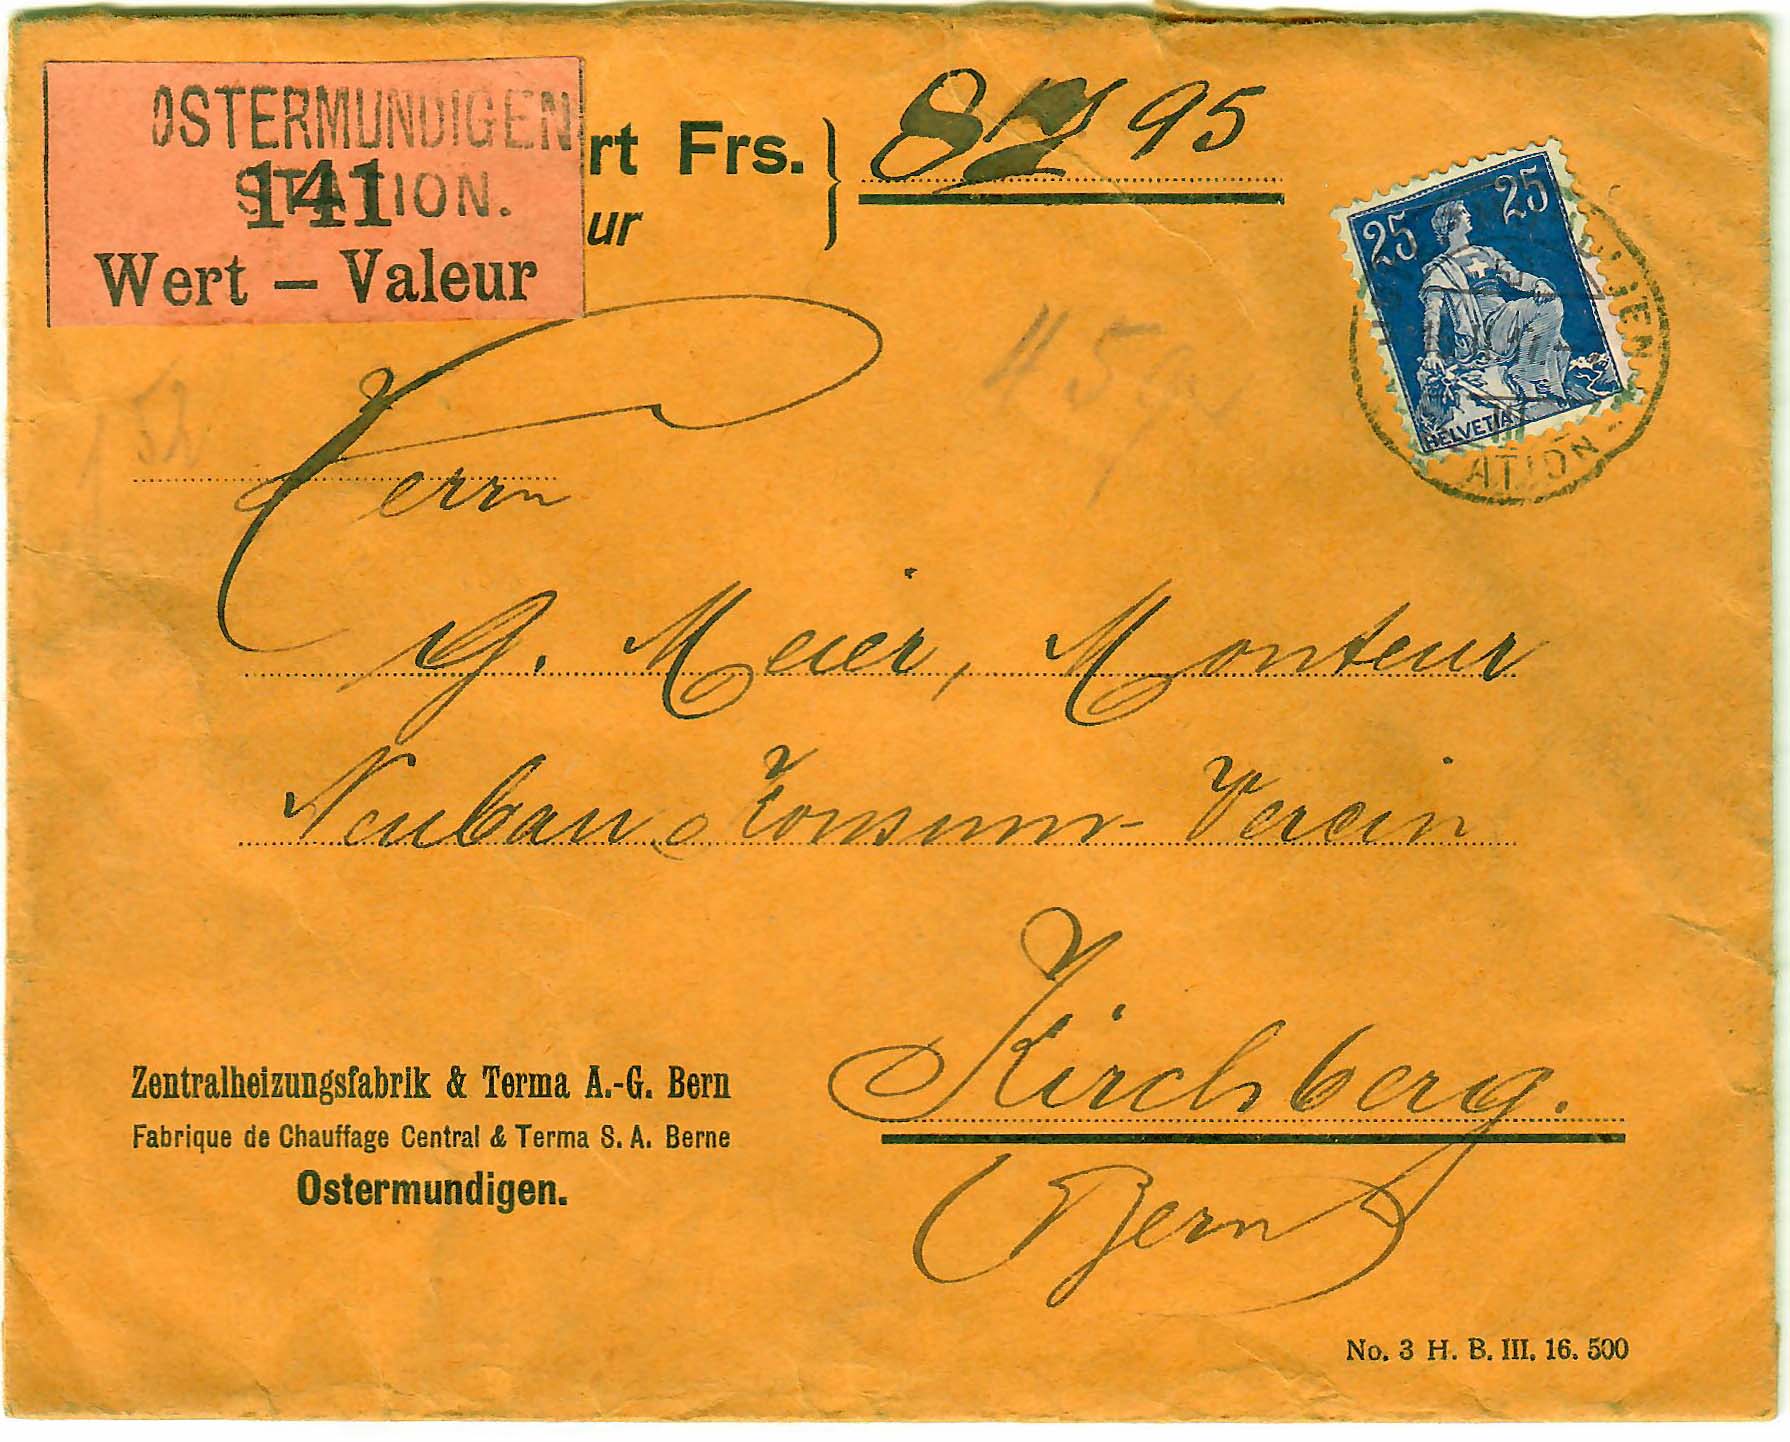 OSTERMUNDIGEN
STATION.
141
Wert – Valeur
rt Frs.
ur
95
25 25
HELVETIA
GEN
ATION
Herrn
G. Meier, Monteur
Neubau Konsum-Verein
Kirchberg.
Bern
Zentralheizungsfabrik & Terma A.-G. Bern
Fabrique de Chauffage Central & Terma S. A. Berne
Ostermundigen.
No. 3 H. B. III. 16. 500